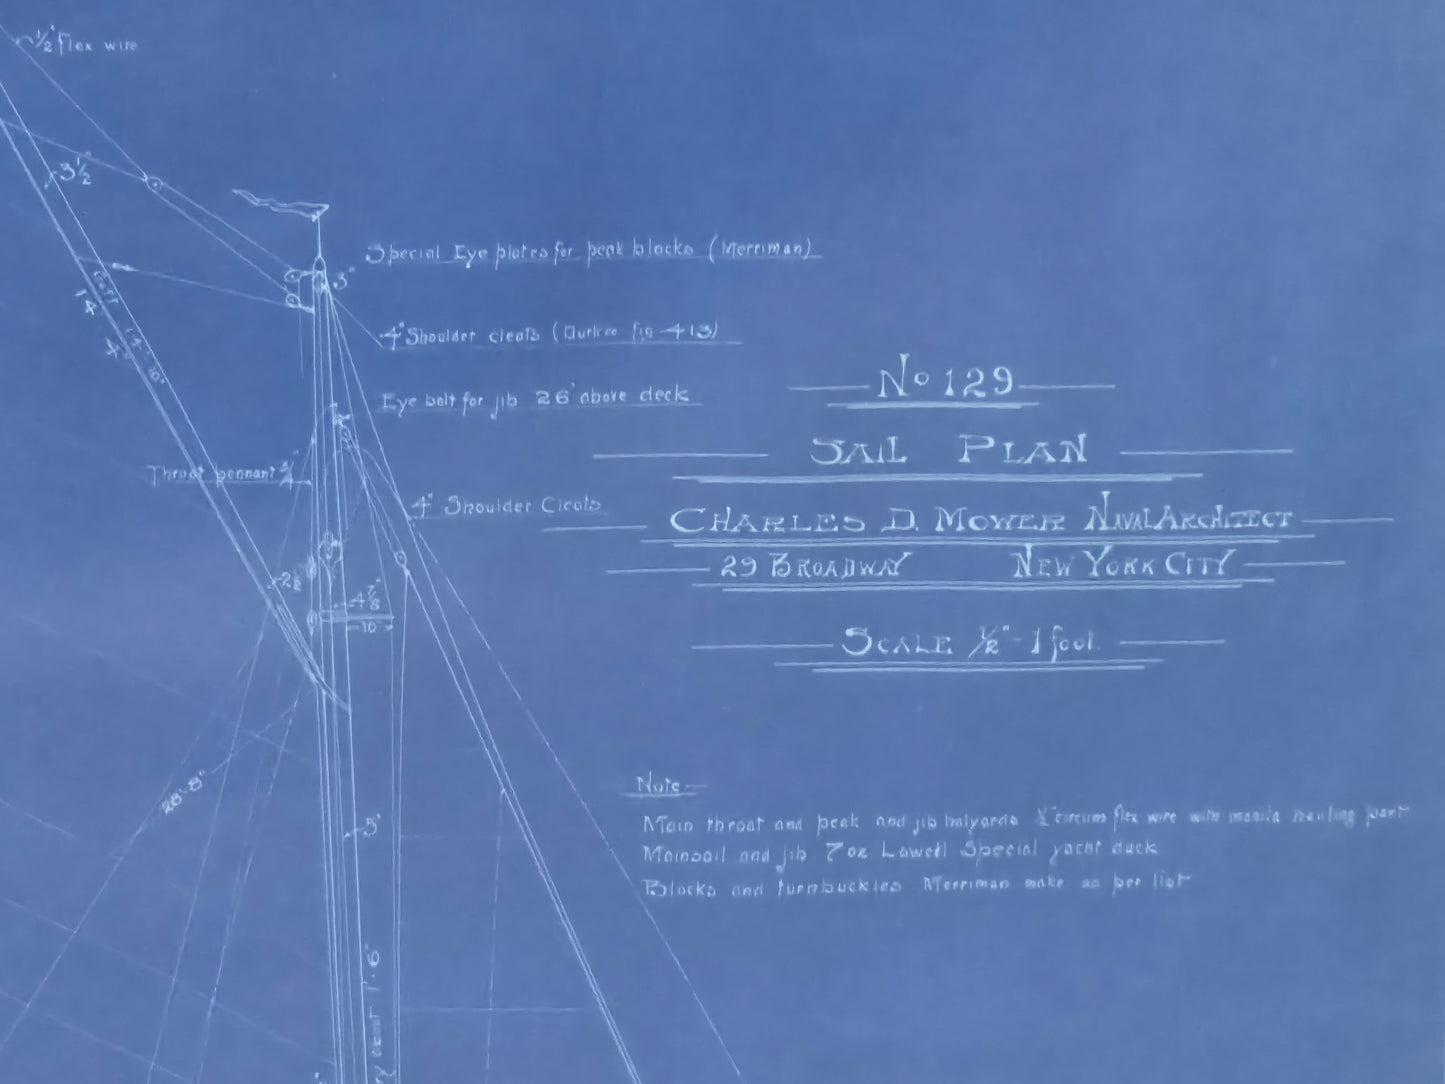 1/2" flex wire
3 1/2
Special Eye plates for peak blocks (Merriman)
3"
4" Shoulder cleats (Durkee fig 413)
Eye bolt for jib 26' above deck
Throat pennant 3/4"
4" Shoulder Cleats
2 1/2"
4 7/8
10"
28'-8"
5"
1'-6"
No 129
SAIL PLAN
CHARLES D. MOWER NAVAL ARCHITECT
29 BROADWAY NEW YORK CITY
SCALE 1/2" - 1 foot.
Note
Main throat and peak and jib halyards circum flex wire with manila hauling part
Mainsail and jib 7 oz Lowell Special yacht duck
Blocks and turnbuckles Merriman make as per list